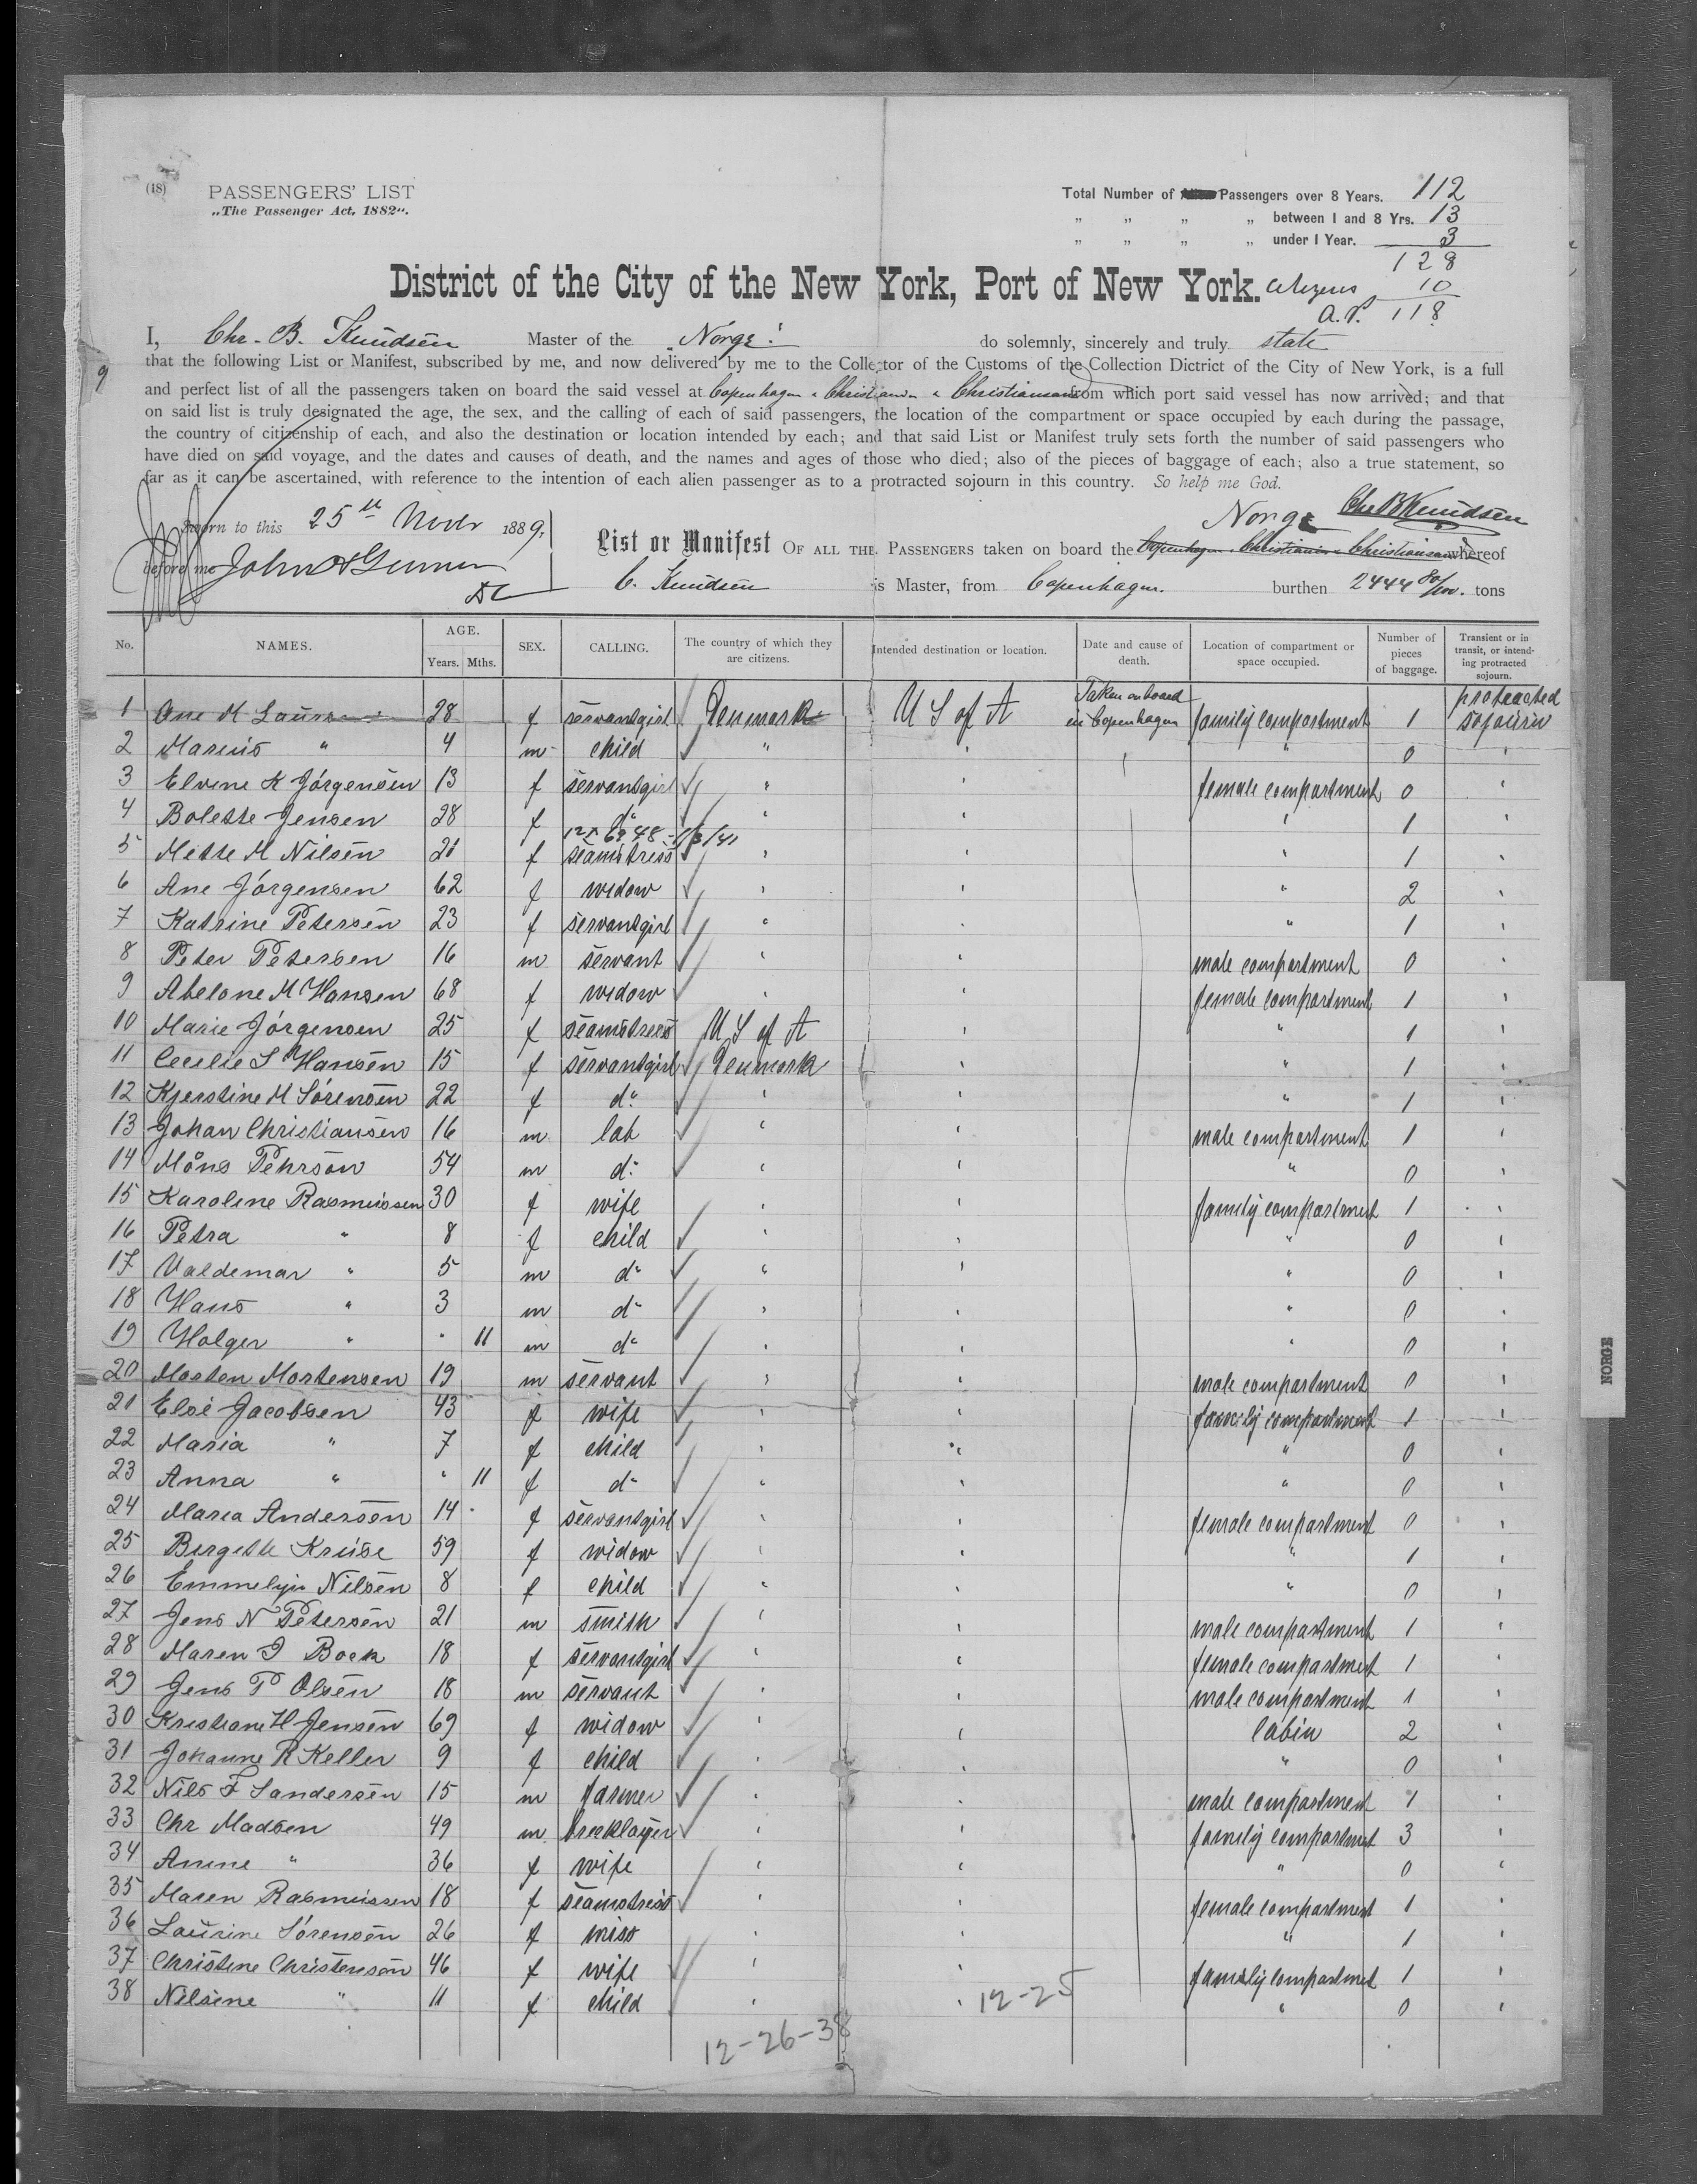 (18)
PASSENGERS' LIST
„The Passenger Act, 1882“.
Total Number of Passengers over 8 Years. 112
„ „ „ „ between 1 and 8 Yrs. 13
„ „ „ „ under 1 Year. 3
128
District of the City of the New York, Port of New York. citizens 10
a.p. 118
I, Chr. B. Knudsen Master of the „Norge“ do solemnly, sincerely and truly state
that the following List or Manifest, subscribed by me, and now delivered by me to the Collector of the Customs of the Collection District of the City of New York, is a full
9
and perfect list of all the passengers taken on board the said vessel at Copenhagen & Christiania & Christiansand from which port said vessel has now arrived; and that
on said list is truly designated the age, the sex, and the calling of each of said passengers, the location of the compartment or space occupied by each during the passage,
the country of citizenship of each, and also the destination or location intended by each; and that said List or Manifest truly sets forth the number of said passengers who
have died on said voyage, and the dates and causes of death, and the names and ages of those who died; also of the pieces of baggage of each; also a true statement, so
far as it can be ascertained, with reference to the intention of each alien passenger as to a protracted sojourn in this country. So help me God.
Chr B Knudsen
Sworn to this 25th Novbr 1889.
Norge
List or Manifest OF ALL THE PASSENGERS taken on board the Copenhagen Christiania & Christiansand whereof
before me John
DC
C. Knudsen is Master, from Copenhagen. burthen 2444 80/100. tons
No. NAMES. AGE. Years. Mths. SEX. CALLING. The country of which they are citizens. Intended destination or location. Date and cause of death. Location of compartment or space occupied. Number of pieces of baggage. Transient or in transit, or intending protracted sojourn.
1 Ane M Laursen 28 f servantgirl Denmark U S of A Taken on board in Copenhagen family compartment 1 protracted sojourn
2 Marius " 4 m child " " " 0 "
3 Elvine K Jörgensen 13 f servantgirl " " female compartment 0 "
4 Bolette Jensen 28 f do " " " 1 "
5 Mette M Nilsen 21 f seamstress " " " 1 "
6 Ane Jörgensen 62 f widow " " " 2 "
7 Katrine Petersen 23 f servantgirl " " " 1 "
8 Peter Petersen 16 m servant " " male compartment 0 "
9 Abelone M Hansen 68 f widow " " female compartment 1 "
10 Marie Jörgensen 25 f seamstress U S of A " " 1 "
11 Cecilie S Hansen 15 f servantgirl Denmark " " 1 "
12 Kjerstine M Sörensen 22 f do " " " 1 "
13 Johan Christiansen 16 m lab " " male compartment 1 "
14 Måns Pehrson 54 m do " " " 0 "
15 Karoline Rasmussen 30 f wife " " family compartment 1 "
16 Petra " 8 f child " " " 0 "
17 Valdemar " 5 m do " " " 0 "
18 Hans " 3 m do " " " 0 "
19 Holger " " 11 m do " " " 0 "
20 Morten Mortensen 19 m servant " " male compartment 0 "
21 Else Jacobsen 43 f wife " " family compartment 1 "
22 Maria " 7 f child " " " 0 "
23 Anna " " 11 f do " " " 0 "
24 Maria Andersen 14 f servantgirl " " female compartment 0 "
25 Birgette Kruse 59 f widow " " " 1 "
26 Emmelyn Nilsen 8 f child " " " 0 "
27 Jens N Petersen 21 m smith " " male compartment 1 "
28 Maren J Boek 18 f servantgirl " " female compartment 1 "
29 Jens P Olsen 18 m servant " " male compartment 1 "
30 Kristiane H Jensen 69 f widow " " Cabin 2 "
31 Johanne R Keller 9 f child " " " 0 "
32 Nils F Sandersen 15 m farmer " " male compartment 1 "
33 Chr Madsen 49 m bricklayer " " family compartment 3 "
34 Anine " 36 f wife " " " 0 "
35 Maren Rasmussen 18 f seamstress " " female compartment 1 "
36 Laurine Sörensen 26 f miss " " " 1 "
37 Christine Christensen 46 f wife " " family compartment 1 "
38 Nilsine " 11 f child " " " 0 "
12-25
12-26-38
NORGE